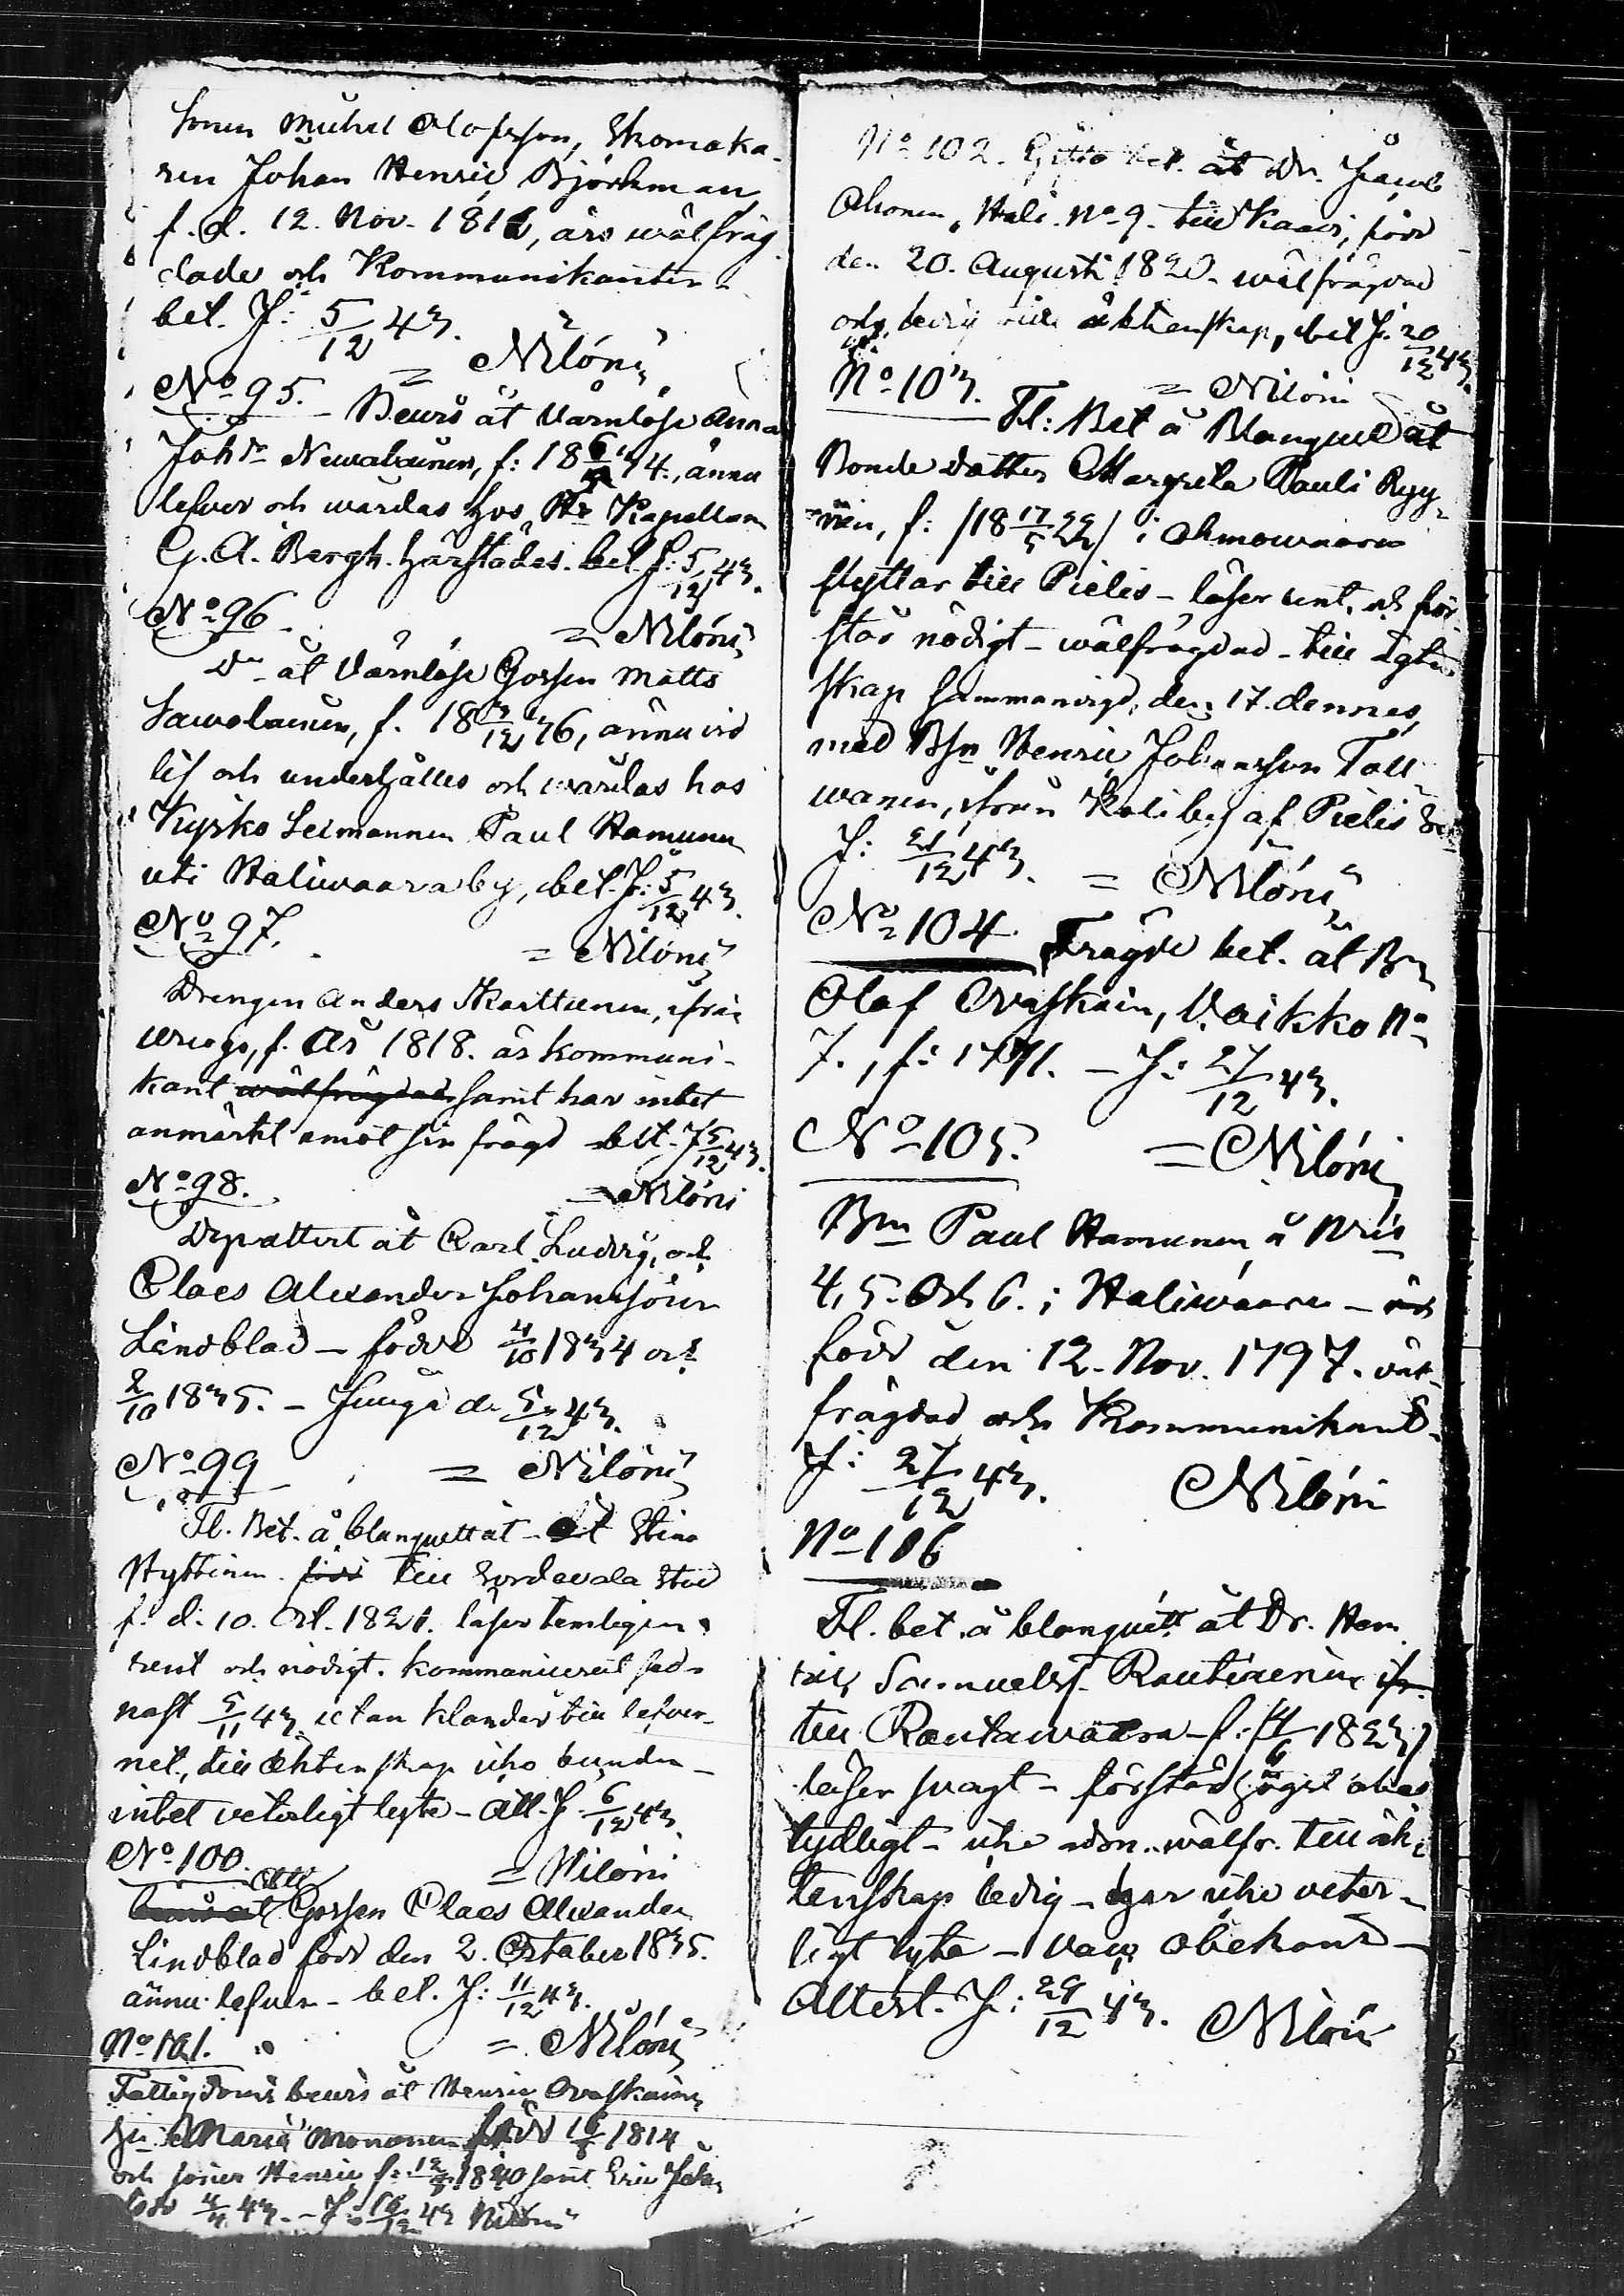 Sonen Michel Olofsson, Skomaka-
ren Johan Henric Björkman,
f. d. 12. Nov. 1816, äro wälfräg-
dade och Kommunikanter
bet. J: 5/12 43.
= Nilóni
No 95.
Bewis åt Värnlöse Anna
Johdr Newalainen, f: 18 44, ännu
lefver och wårdas hos Hr Kapellan
G. A. Bergh. härstädes. bet. J: 5/12 43.
No 96
= Nilóni
Do åt Värnlöse Gossen Matts
Sawolainen, f. 18 36, ännu vid
lif och underhålles och wårdas hos
Kyrko Seimannen Paul Hamunen
uti Haliwaara by, bet. J: 5/12 43.
No 97.
= Nilóni
Drengen Anders Karttunen, ifrån
f. År 1818. är kommuni-
kant wälfrägdad samt har intet
anmärkt emot sin frägd bet. J 5/12 43.
No 98.
= Nilóni
åt Carl Ludvig, och
Claes Alexander Johanssöner
Lindblad – född 4/10 1834 och
2/10 1835. – Juuga d. 5/12 43.
No 99
= Nilóni
Fl. Bet. å blanquett åt Stina
Hyttinen. född till Sordavala Stad
f. d. 10. Oct. 1821. läser temligen
rent och nödigt. kommunicerat sed-
nast 5/11 43. utan klander till lefver-
net, till äktenskap icke bunden –
intet veterligt lyte – Att. J. 6/12 43.
No 100.
= Nilóni
Att
Gossen Claes Alexander
Lindblad född den 2. October 1835.
ännu lefver – bet. J: 11/12 43.
No 101.
= Nilóni
Fattigdoms bewis åt Henric Ovaskainen
Maria Mononen född 1814
och söner Henric, f: 1840 samt Eric Joh.
43. – J: 16/12 43 Nilóni
No 102. bet. åt Dr. Jacob
Ahonen, Hali. No 9. till Kaavi, född
den 20. Augusti 1820. wälfrägdad
och ledig till äktenskap, bet J. 20/12 43.
No 103.
= Nilóni
Fl: Bet å Blanquet åt
Bonde dotter Margreta Pauli Ryy-
nin, f: /18 17/5 22/ i Ahmowaara
flyttar till Pielis – läser rent, och för-
står nödigt – wälfrägdad – till ägten-
skap sammanvigd, den 17. dennes,
med Bsn Henric Johansson Toll-
wanen, ifrån Koli by af Pielis
J: 21/12 43.
= Nilóni
No 104
Frägde bet. åt Bn
Olof Ovaskain, Vaikko No
7., f: 1771. – J: 27/12 43.
No 105.
= Nilóni
Bn Paul Hamunen å Nris
4, 5. Och 6. i Haliwaara –
född den 12. Nov. 1797. väl-
frägdad och Kommunikant.
J: 27/12 43.
Nilóni
No 106
Fl. bet. å blanquett åt Dr. Hen-
ric Samuelsf. Rautiainen ifr.
till Rautawaara – f: 1823
läser svagt – förstår
tydligt – icke wälfr. till äk-
tenskap ledig – har icke veter-
ligt lyte – obekant –
Attest. J: 29/12 43.
Nilóni